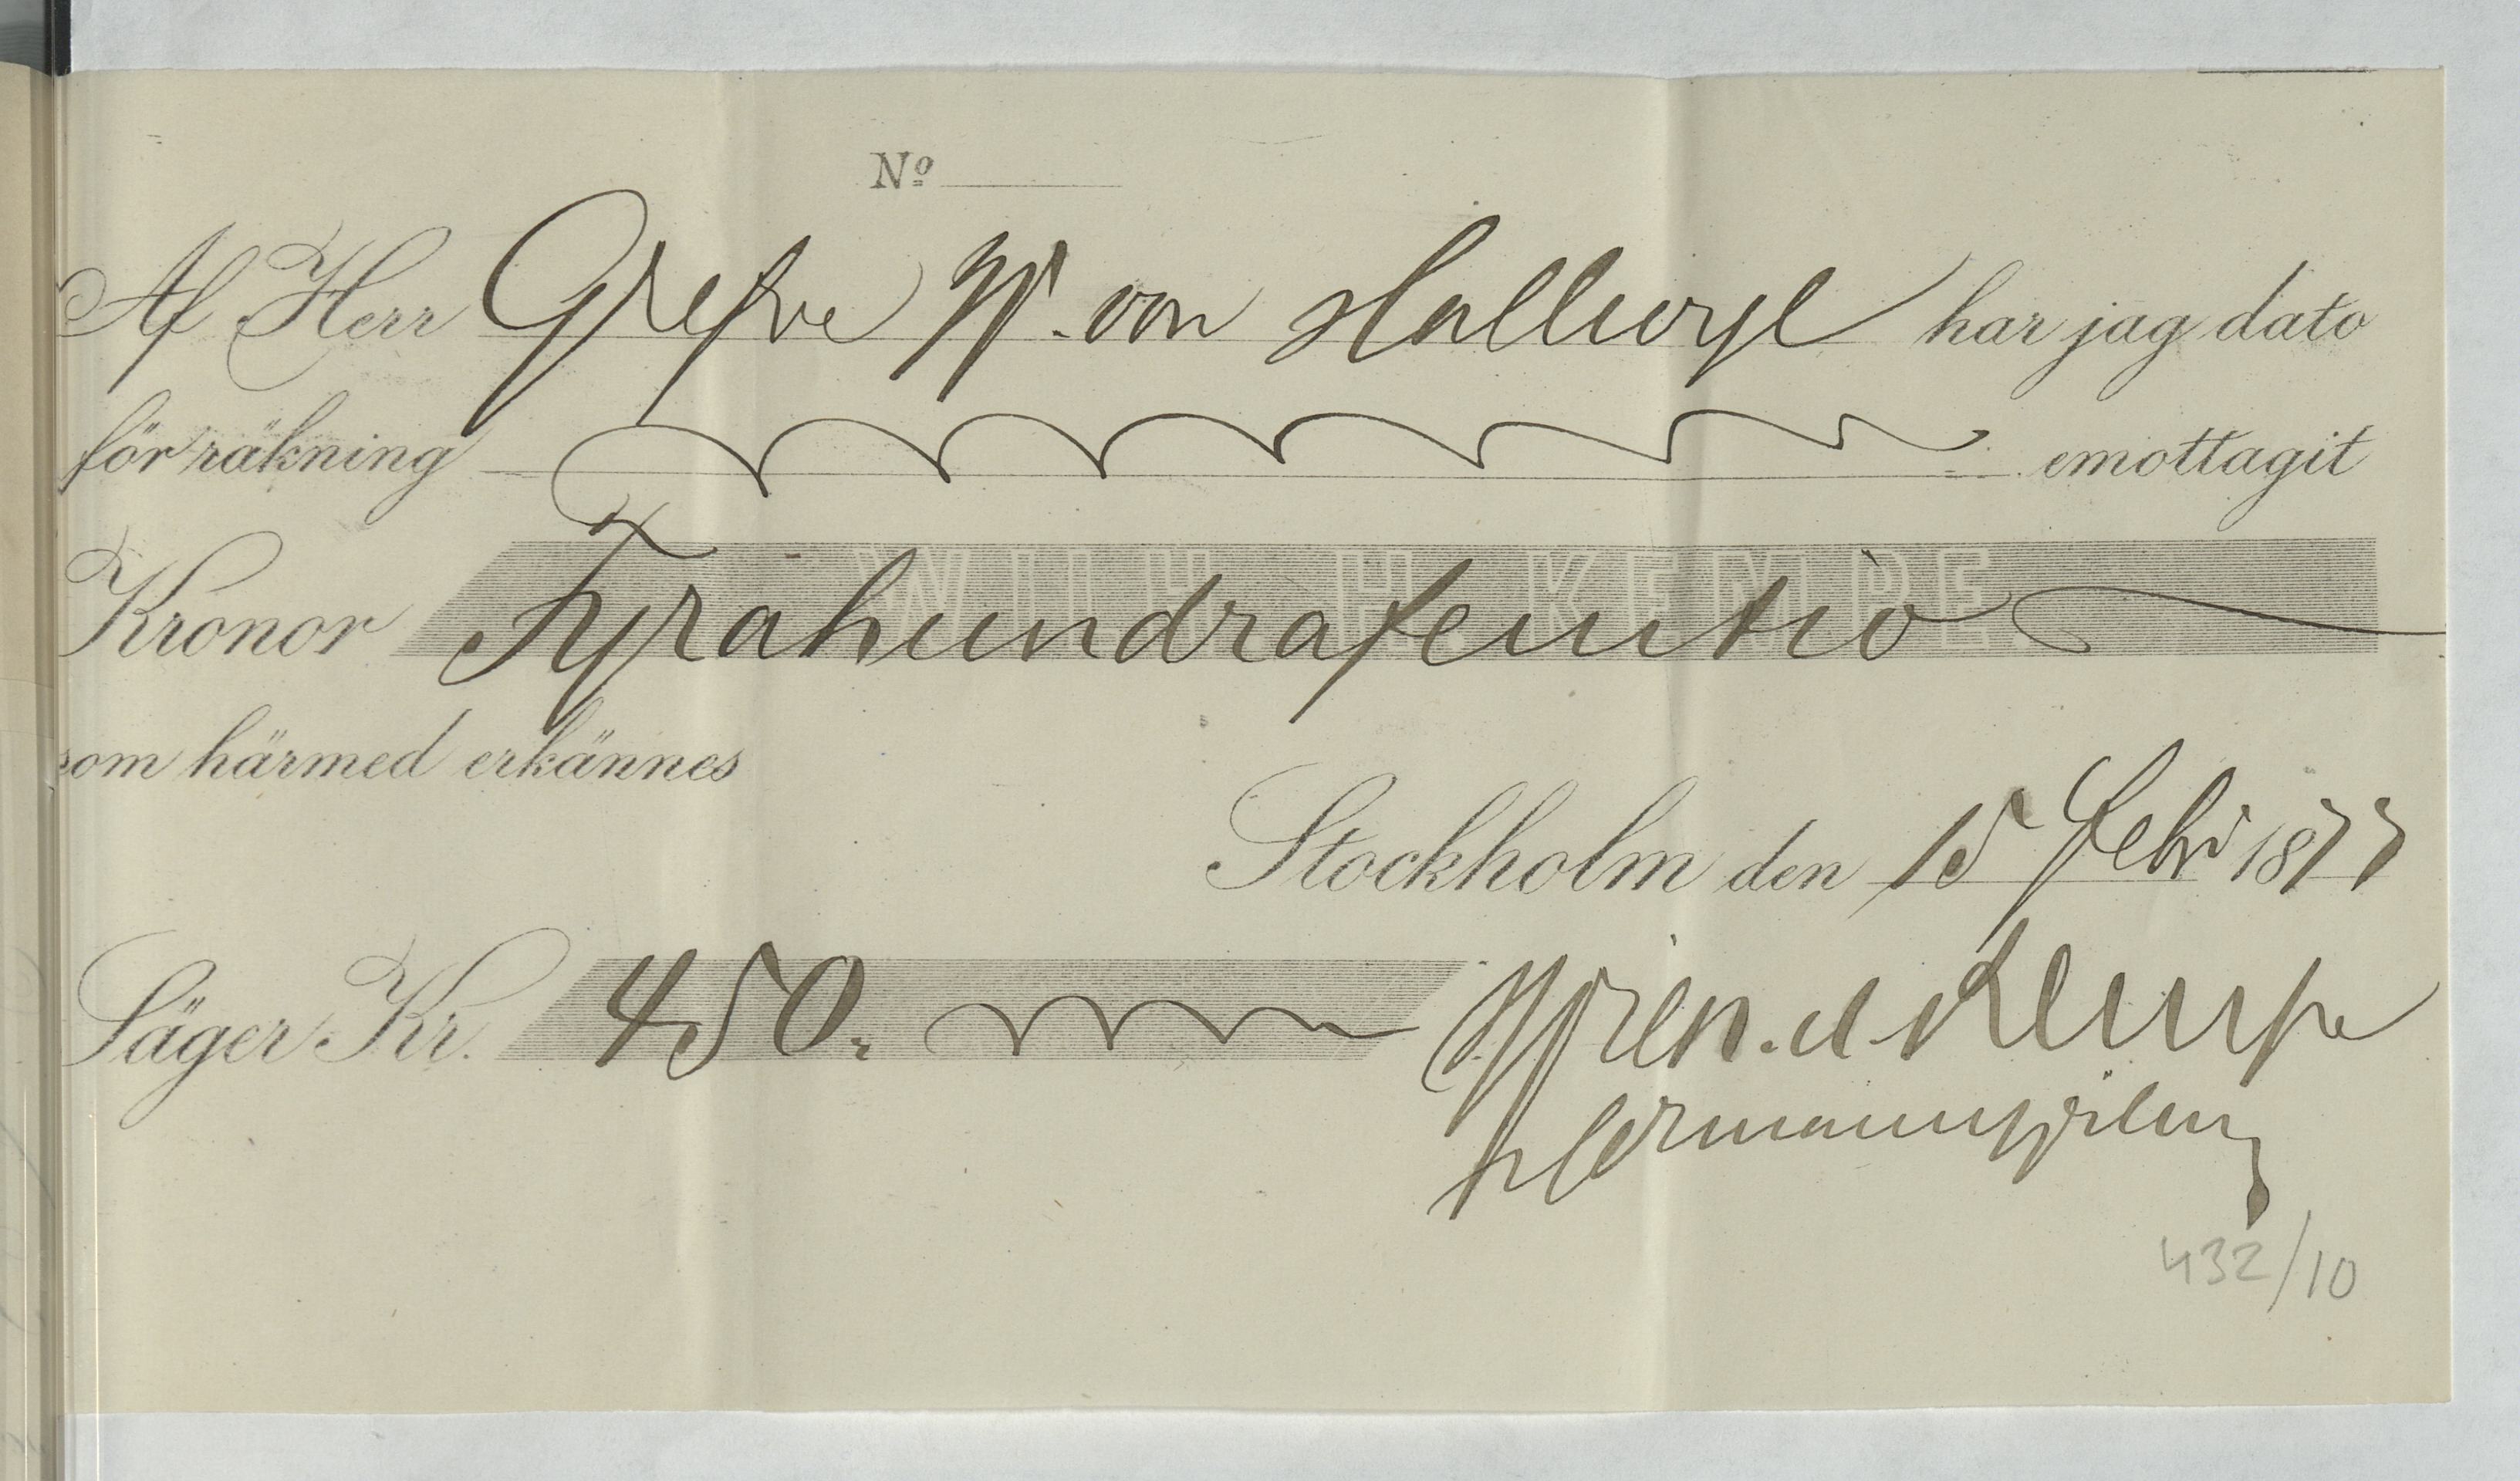 Nº
Af Herr Grefve W. von Hallwyl har jag dato
för räkning emottagit
WILH. H. KEMPE
Kronor Fyrahundrafemtio
som härmed erkännes
Stockholm den 15 Febr 1877
Säger Kr. 450. Wilh. H. Kempe
432/10